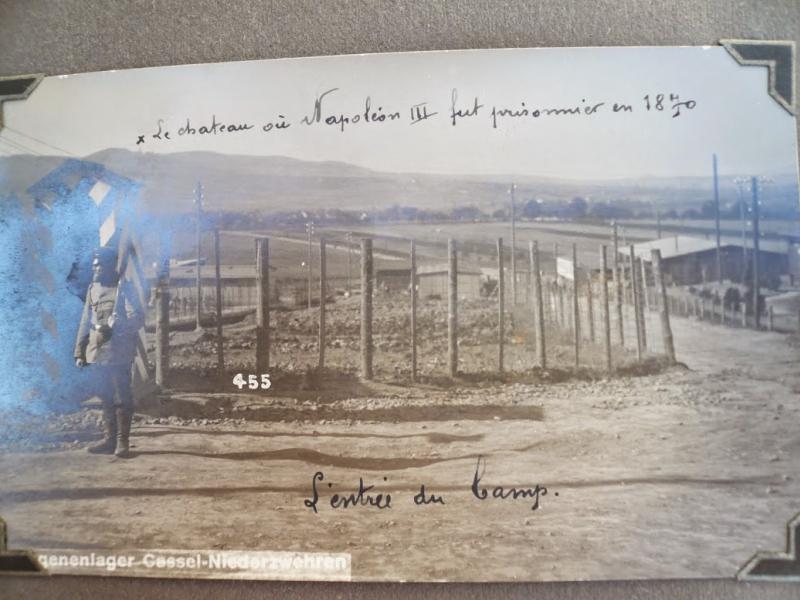 x Le chateau où Napoléon III fut prisonnier en 1870
455
L'entrée du Camp.
genenlager Cassel-Niederzwehren